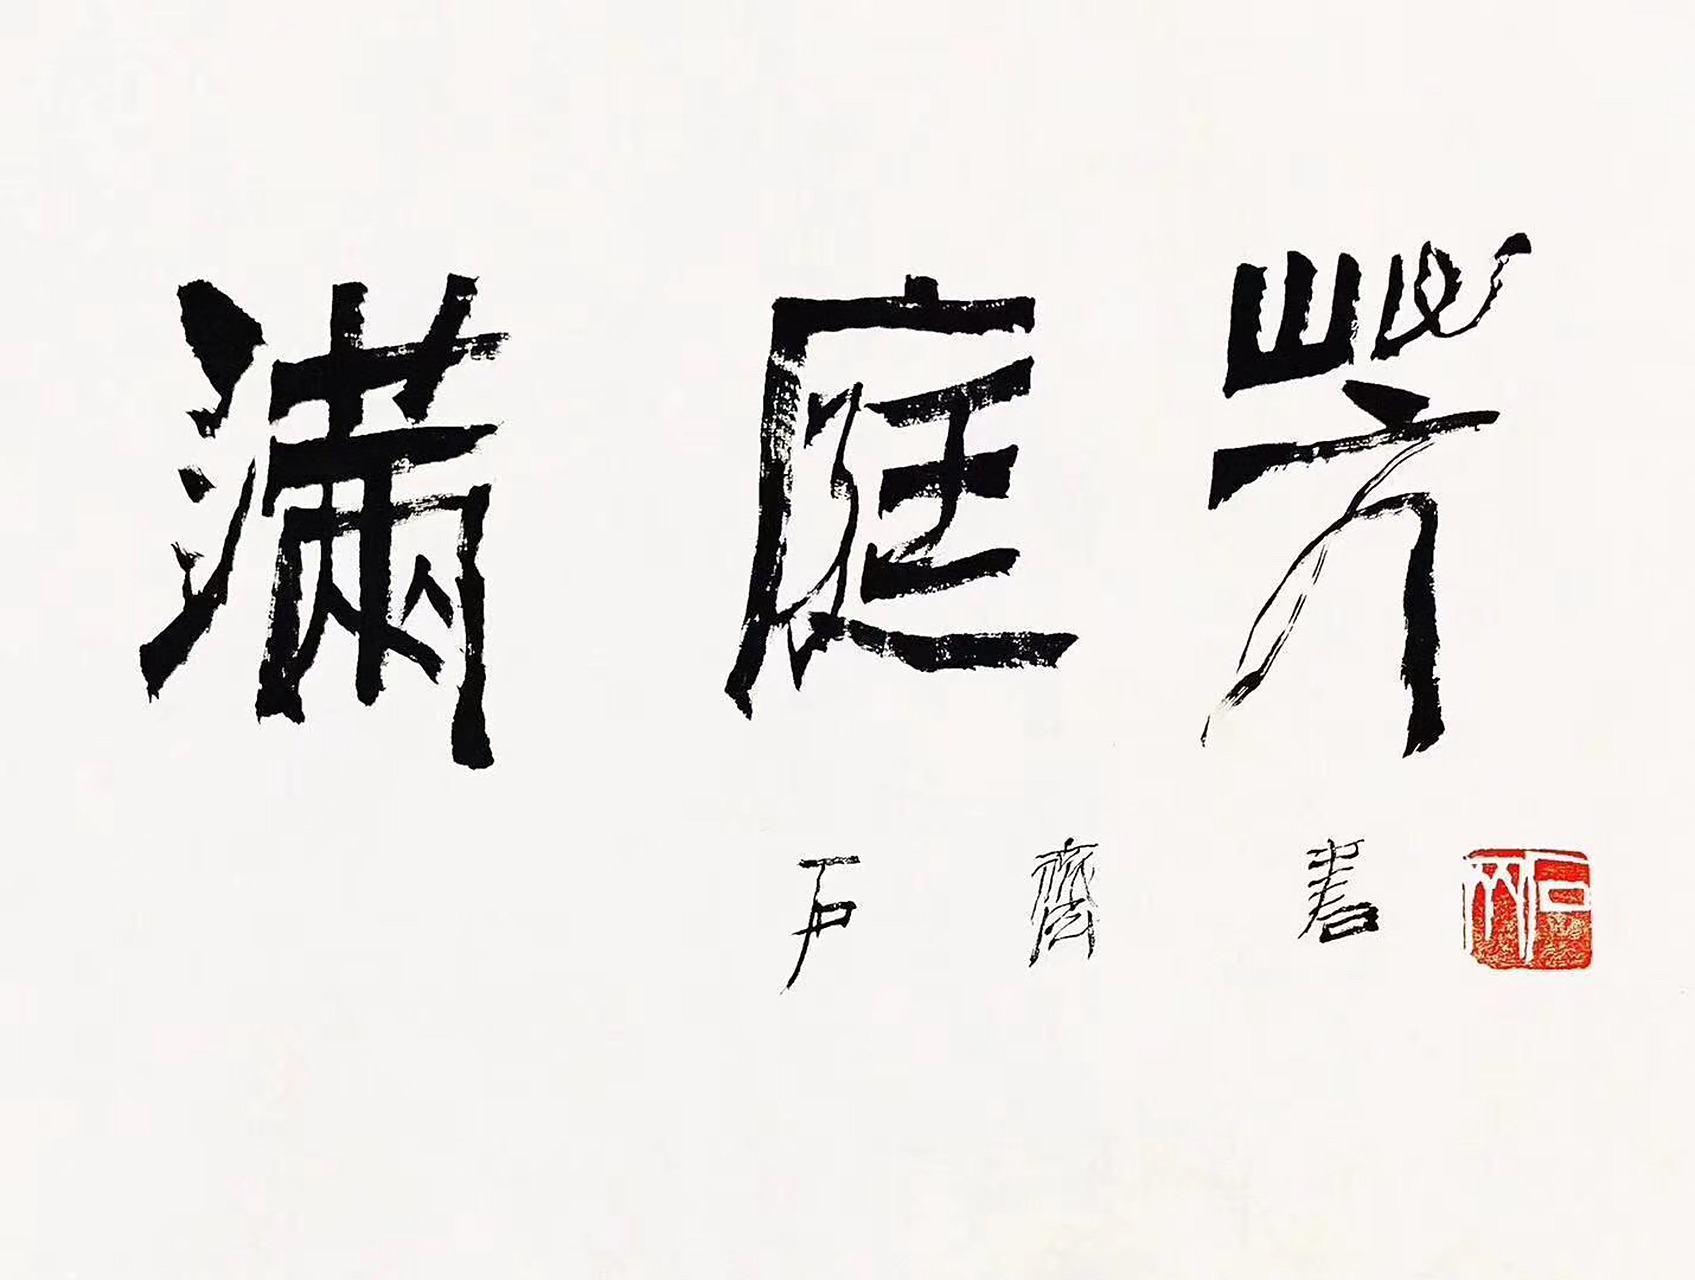 滿庭芳
石齊書